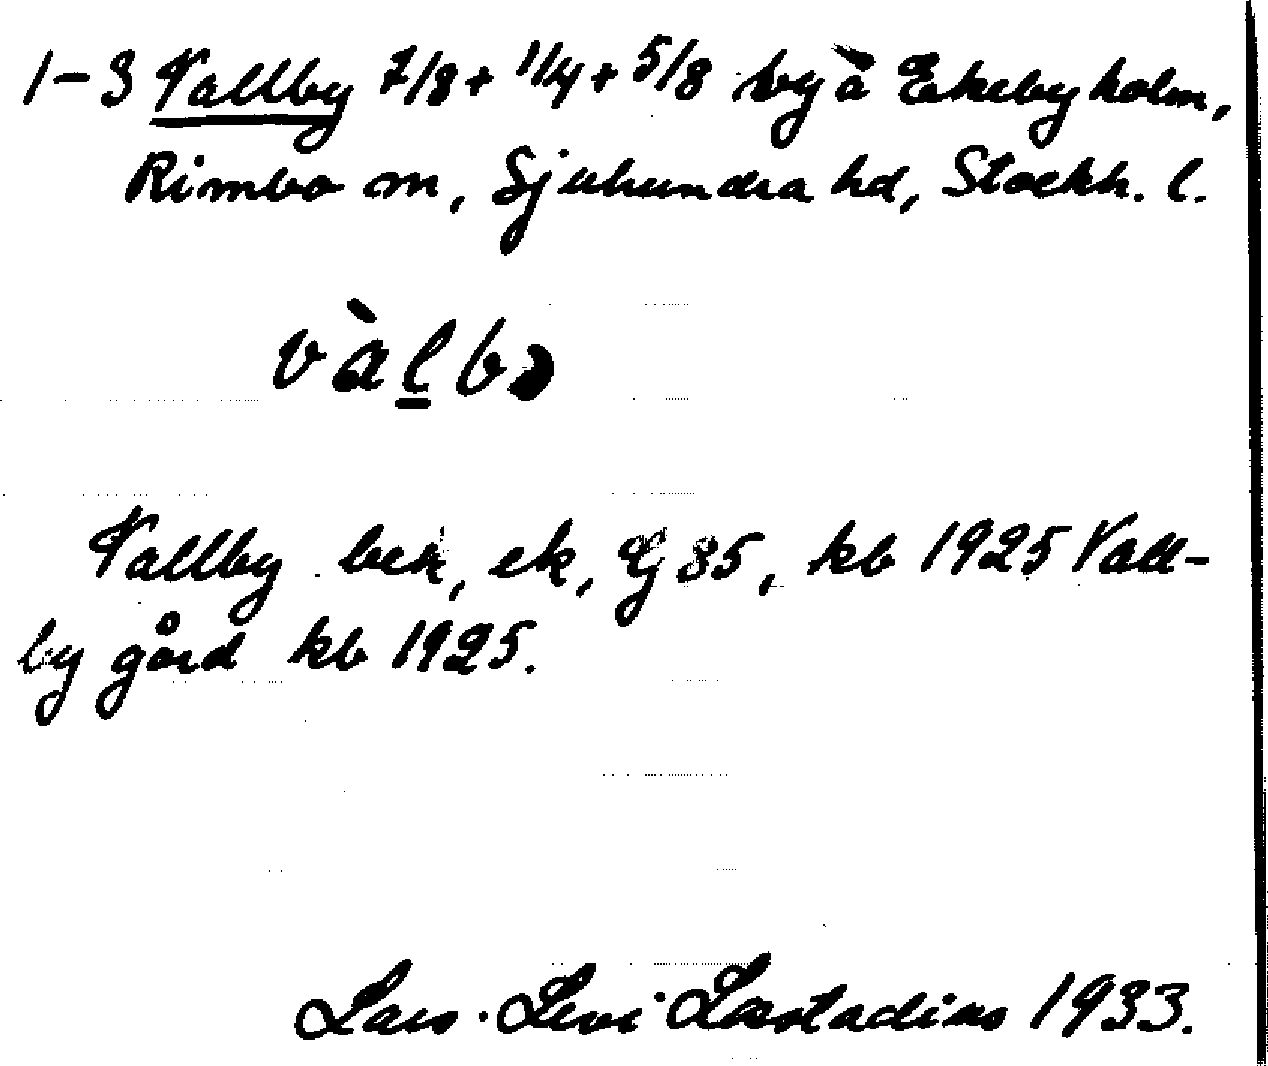 1-3 Vallby 7/8 + 1/4 + 5/8 by å Ekebyholm,
Rimbo sn, Sjuhundra hd, Stockh. l.
vàlbə
Vallby bek, ek, Gj 85, kb 1925 Vall-
by gård kb 1925.
Lars-Levi Læstadius 1933.